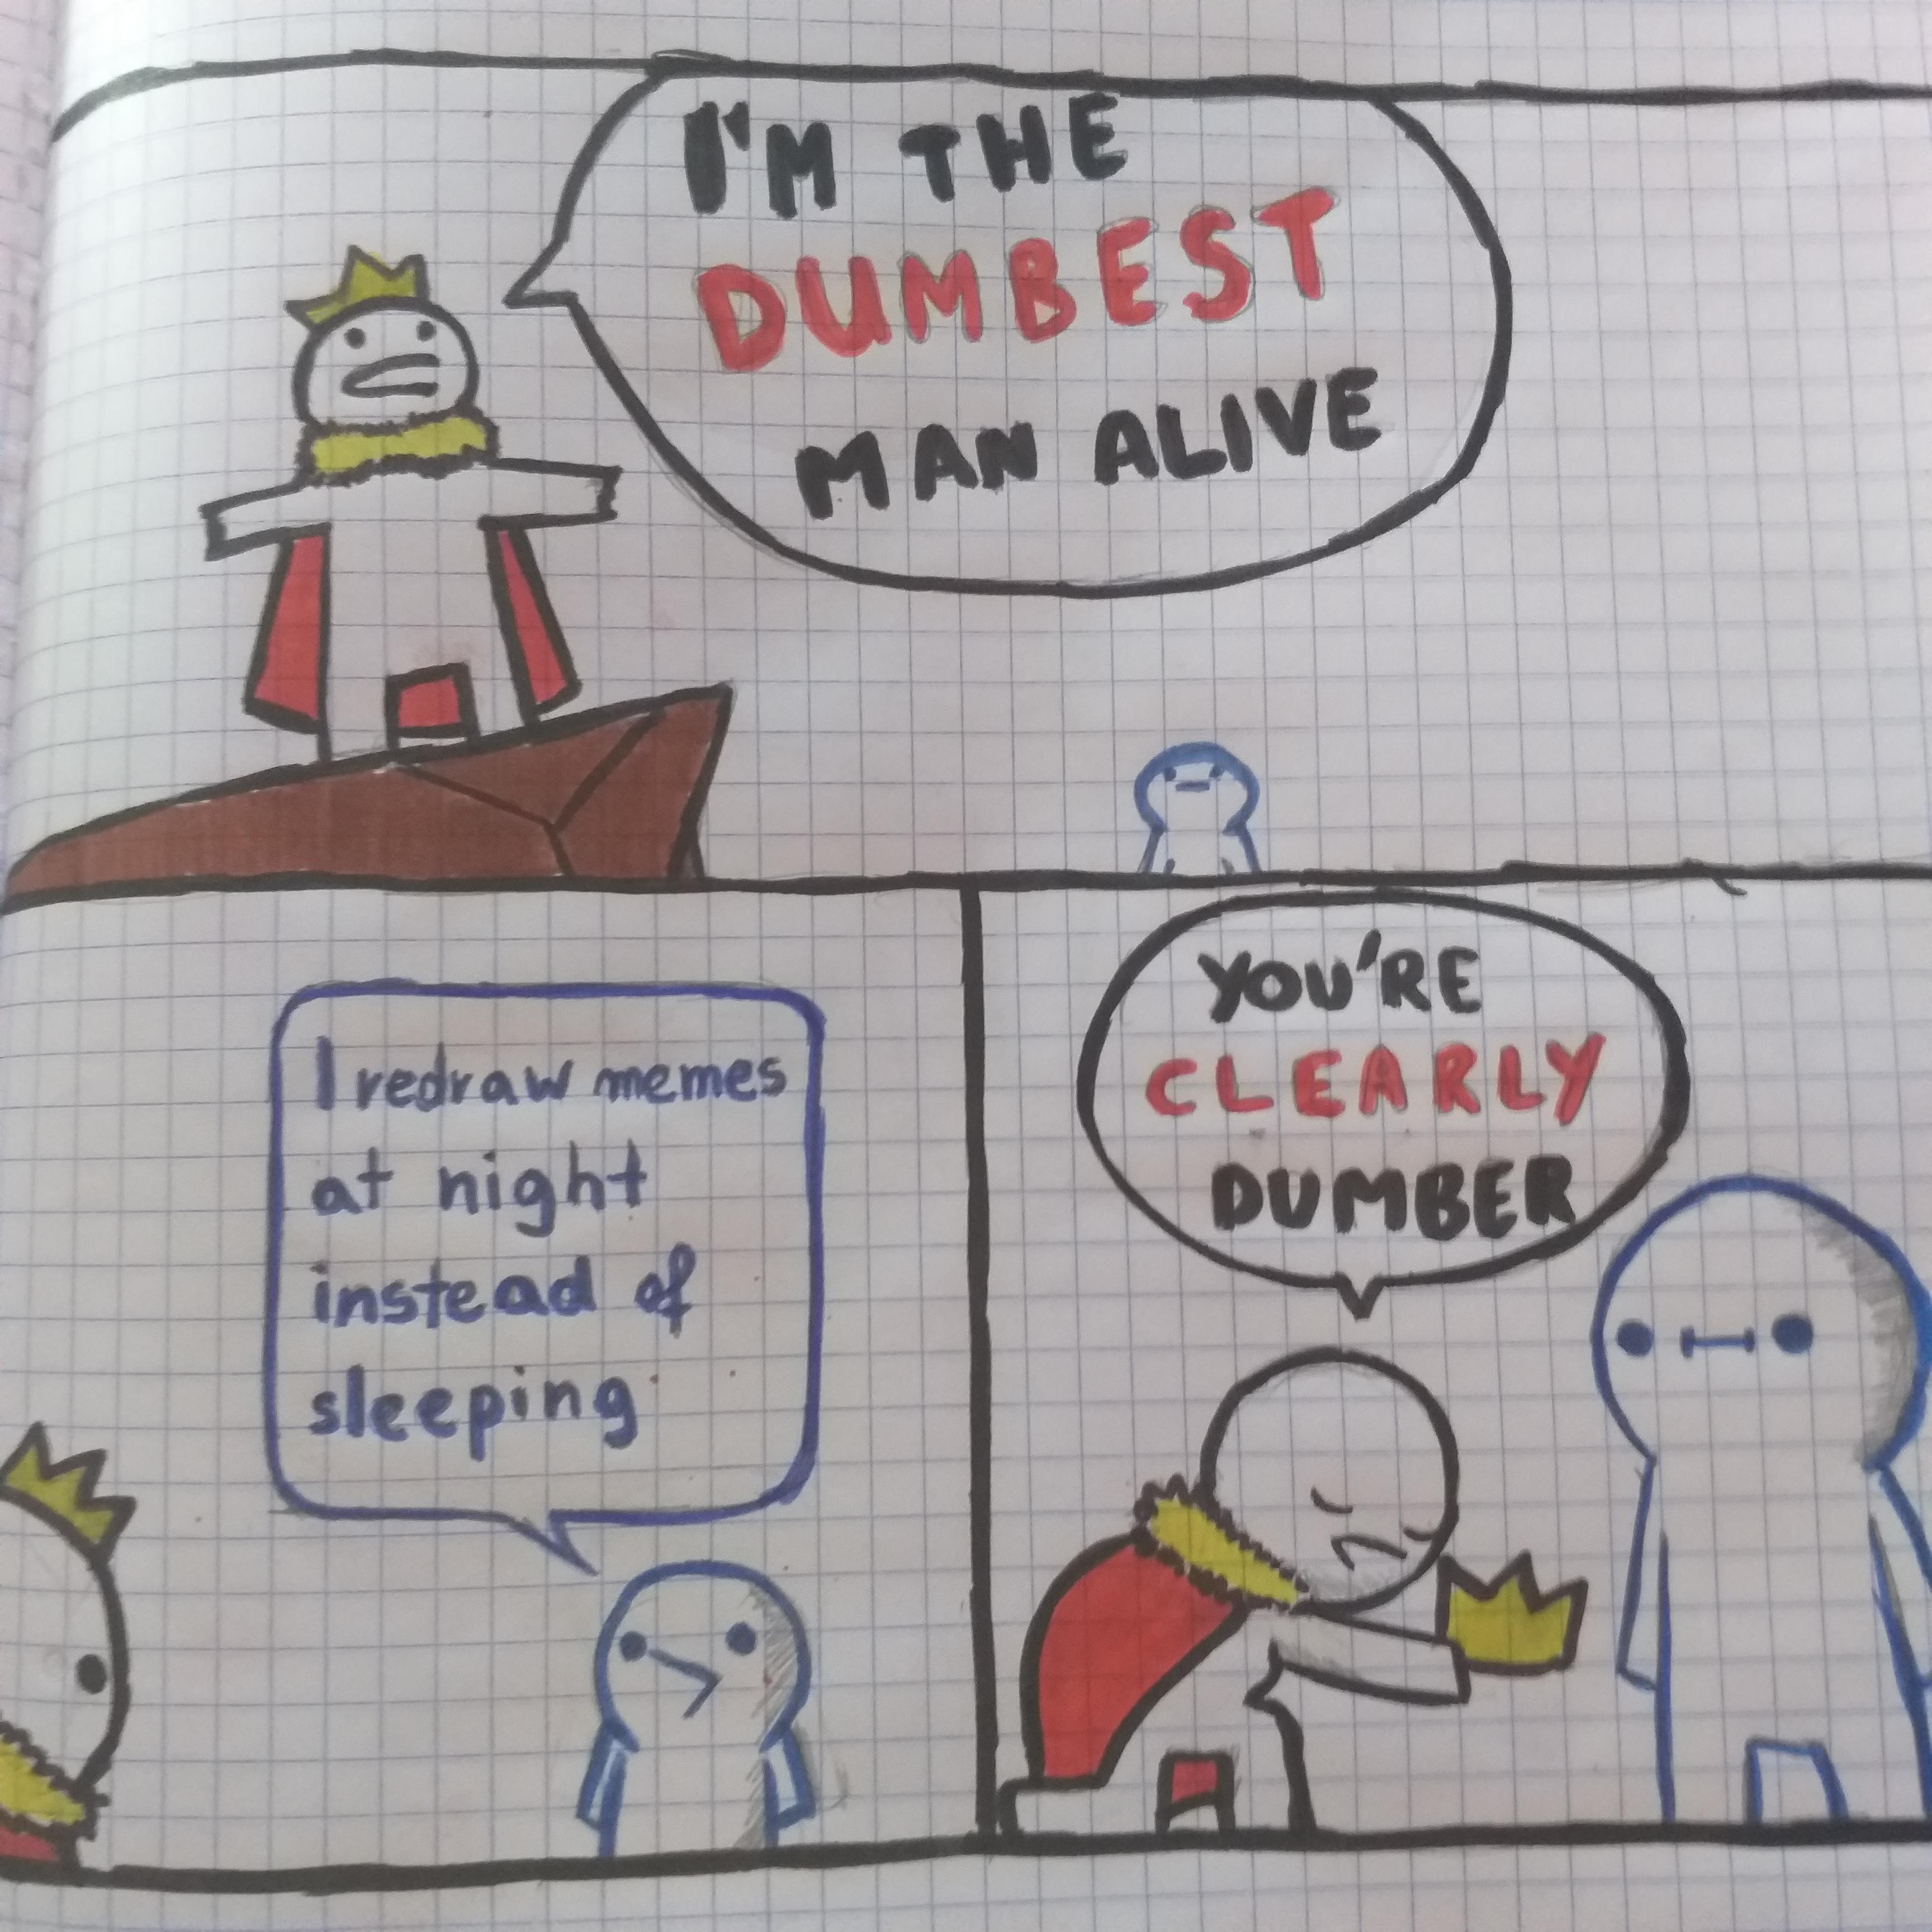 I'M THE
DUMBEST
MAN ALIVE
I redraw memes
at night
instead of
sleeping
YOU'RE
CLEARLY
DUMBER